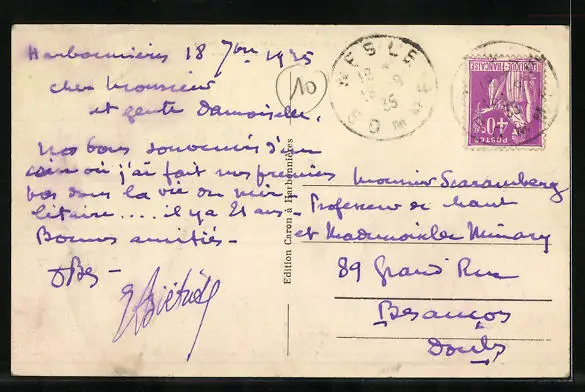 Harbonnières 18 7bre 1935
Cher Monsieur
et gente Damoiselle,
Nos bons souvenirs d'un
coin où j'ai fait nos premiers
pas dans la vie du mi-
litaire .... il y a 21 ans -
Bonnes amitiés -
10
NESLE
18 - 9
35
SOMME
POSTES
40c
REPUBLIQUE FRANCAISE
Edition Caron à Harbonnières
Monsieur Scaremberg
Professeur de chant
et Mademoiselle Minary
89 Grand Rue
Besançon
Doubs